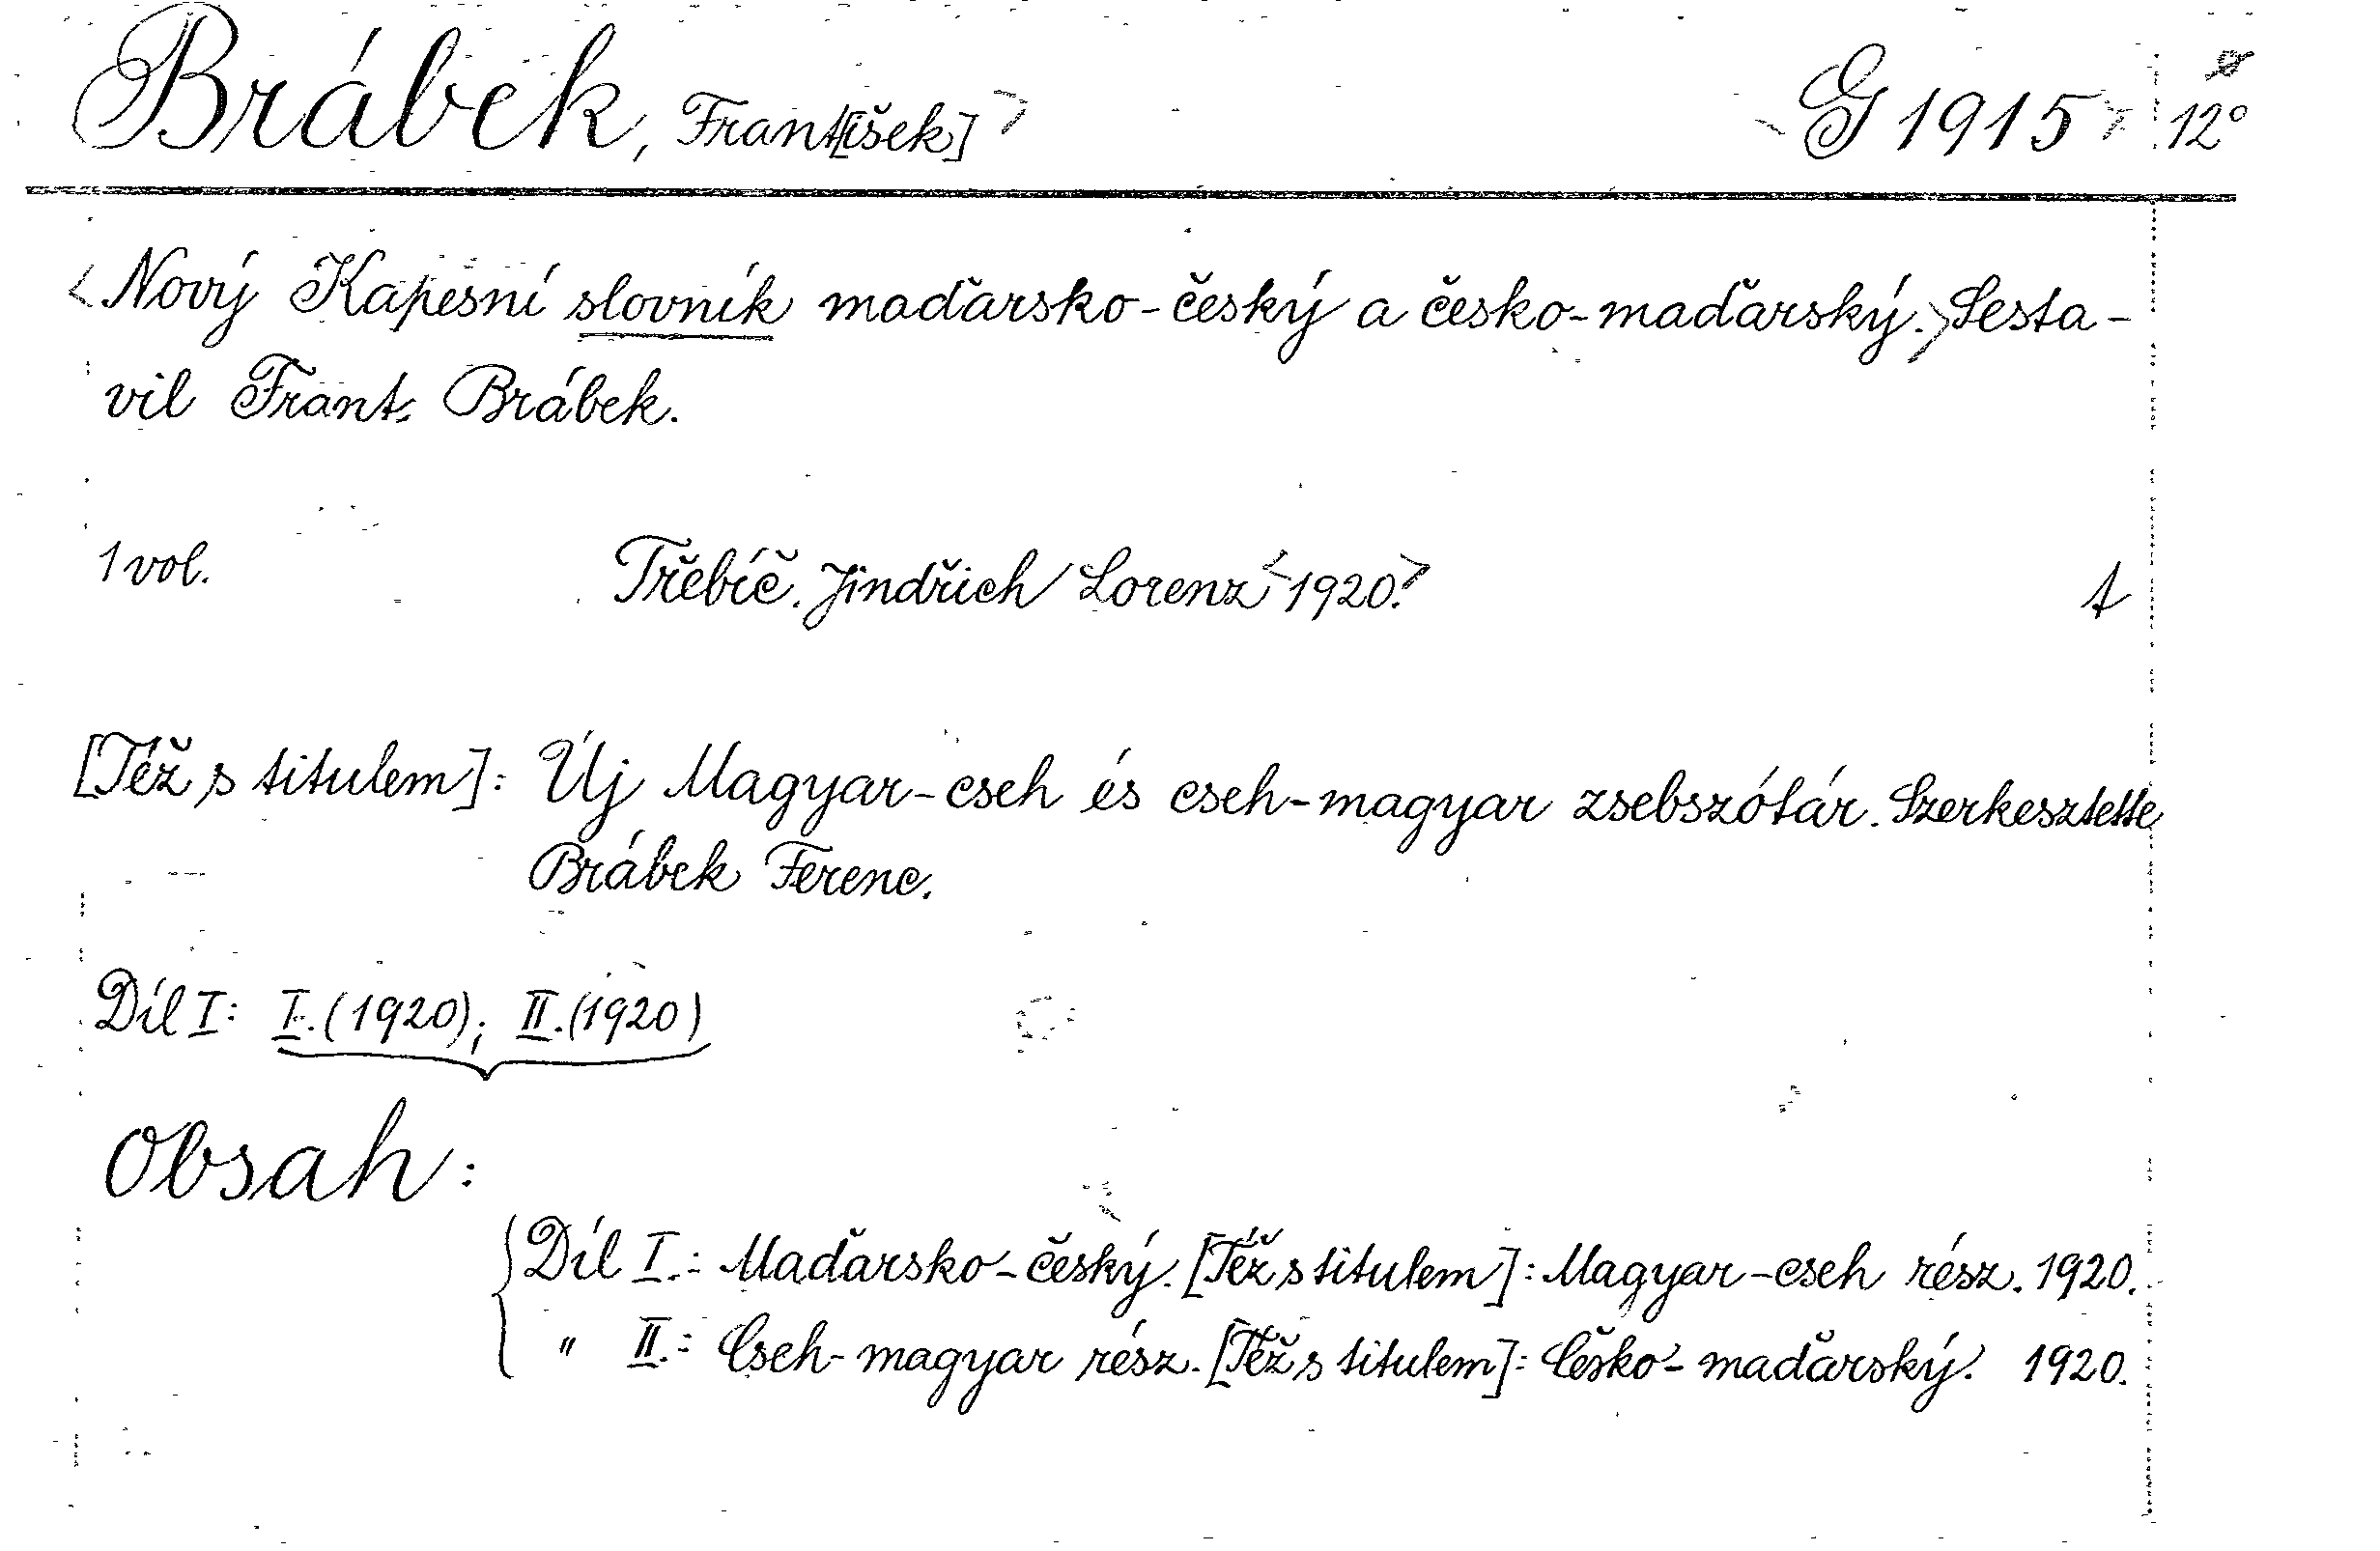 Brábek, Frant[išek] G 1915 12°
Nový Kapesní slovník maďarsko-český a česko-maďarský. Sesta-
vil Frant. Brábek.
1 vol. Třebíč. Jindřich Lorenz <1920.> t
[Též s titulem]: Új Magyar-cseh és cseh-magyar zsebszótár. Szerkesztette
Brábek Ferenc.
Díl I: I. (1920); II. (1920)
Obsah:
Díl I.: Maďarsko-český. [Též s titulem]: Magyar-cseh rész. 1920.
" II.: Cseh-magyar rész. [Též s titulem]: Česko-maďarský. 1920.